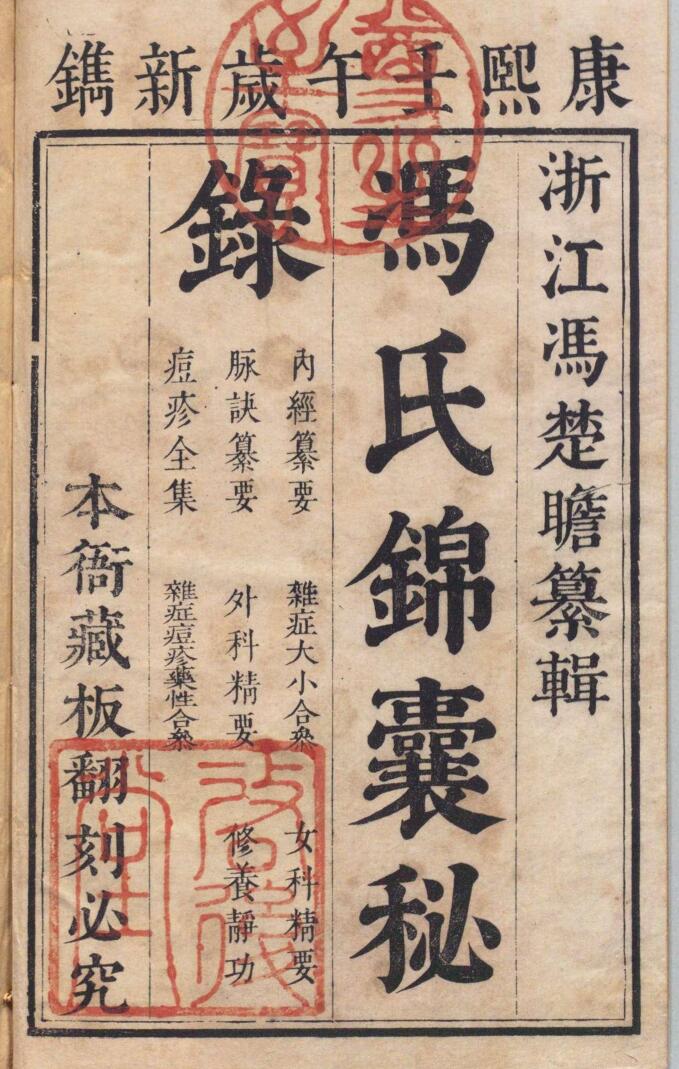 康熙壬午歲新鐫
浙江馮楚瞻纂輯
馮氏錦囊秘
錄
內經纂要 雜症大小合叅 女科精要
脉訣纂要 外科精要 修養靜功
痘疹全集 雜症痘疹藥性合叅
本衙藏板翻刻必究